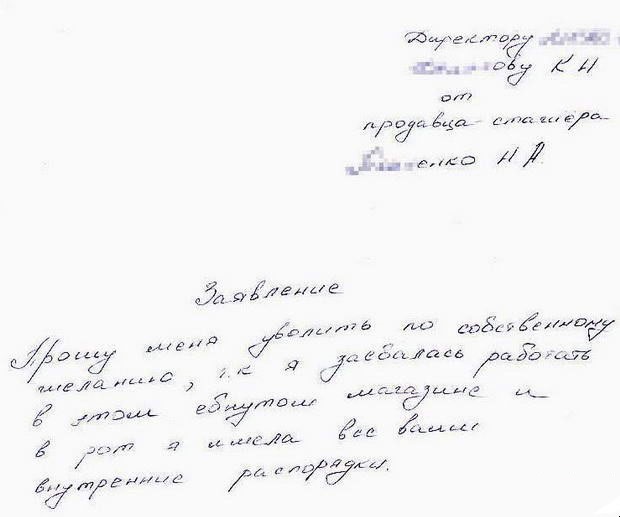 Директору
ову К Н
от
продавца-стажёра
енко Н А.
Заявление
Прошу меня уволить по собственному
желанию, т.к я заебалась работать
в этом ебнутом магазине и
в рот я имела все ваши
внутренние распорядки.